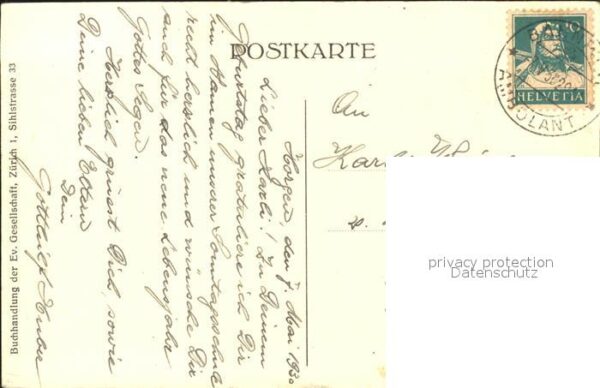 POSTKARTE
Horgen, den 7. Mai 1930
Lieber Karli! Zu Deinem
Geburtstag gratuliere ich Dir
im Namen unserer Sonntagschule
recht herzlich und wünsche Dir
auch für das neue Lebensjahr
Gottes Segen.
Herzlich grüsst Dich, sowie
Deine lieben Eltern
Dein
Gottlieb Huber
An
Karl
HELVETIA
AMBULANT
Buchhandlung der Ev. Gesellschaft, Zürich 1, Sihlstrasse 33
privacy protection
Datenschutz